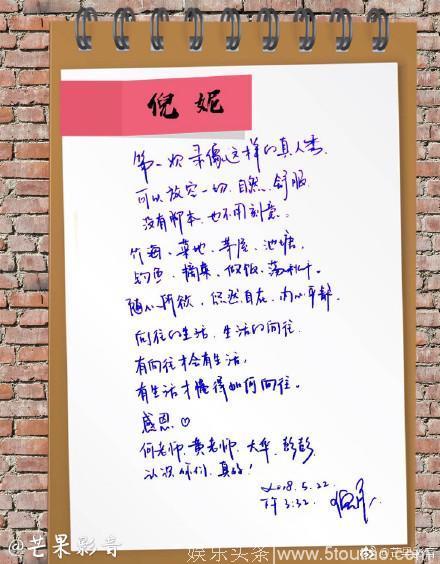 倪妮
第一次录像这样的真人秀
可以放空一切,自然,舒服
没有脚本,也不用刻意。
竹海、菜地、茅屋、池塘,
钓鱼、摘菜、做饭、荡秋千。
随心所欲,悠然自在,内心平静。
向往的生活,生活的向往
有向往才会有生活,
有生活才懂得如何向往。
感恩♡
何老师,黄老师,大华,彭彭
认识你们,真好!
2018.5.22
下午3:32 倪妮
@芒果影音
@芒果影音
娱乐头条 www.5toutiao.com